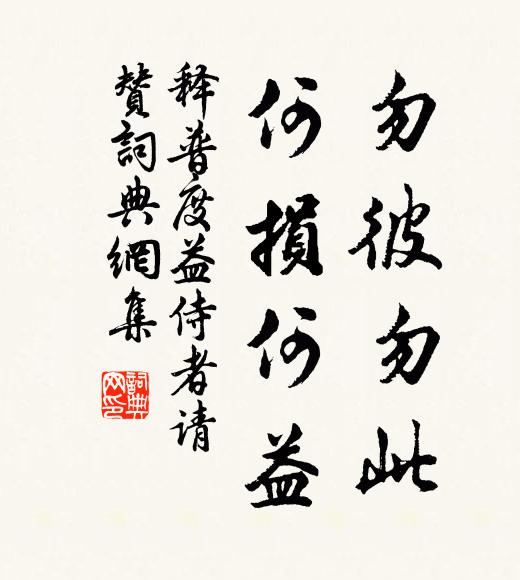 勿彼勿此
何損何益
释普度益侍者请
赞詞典網集
詞典
网印